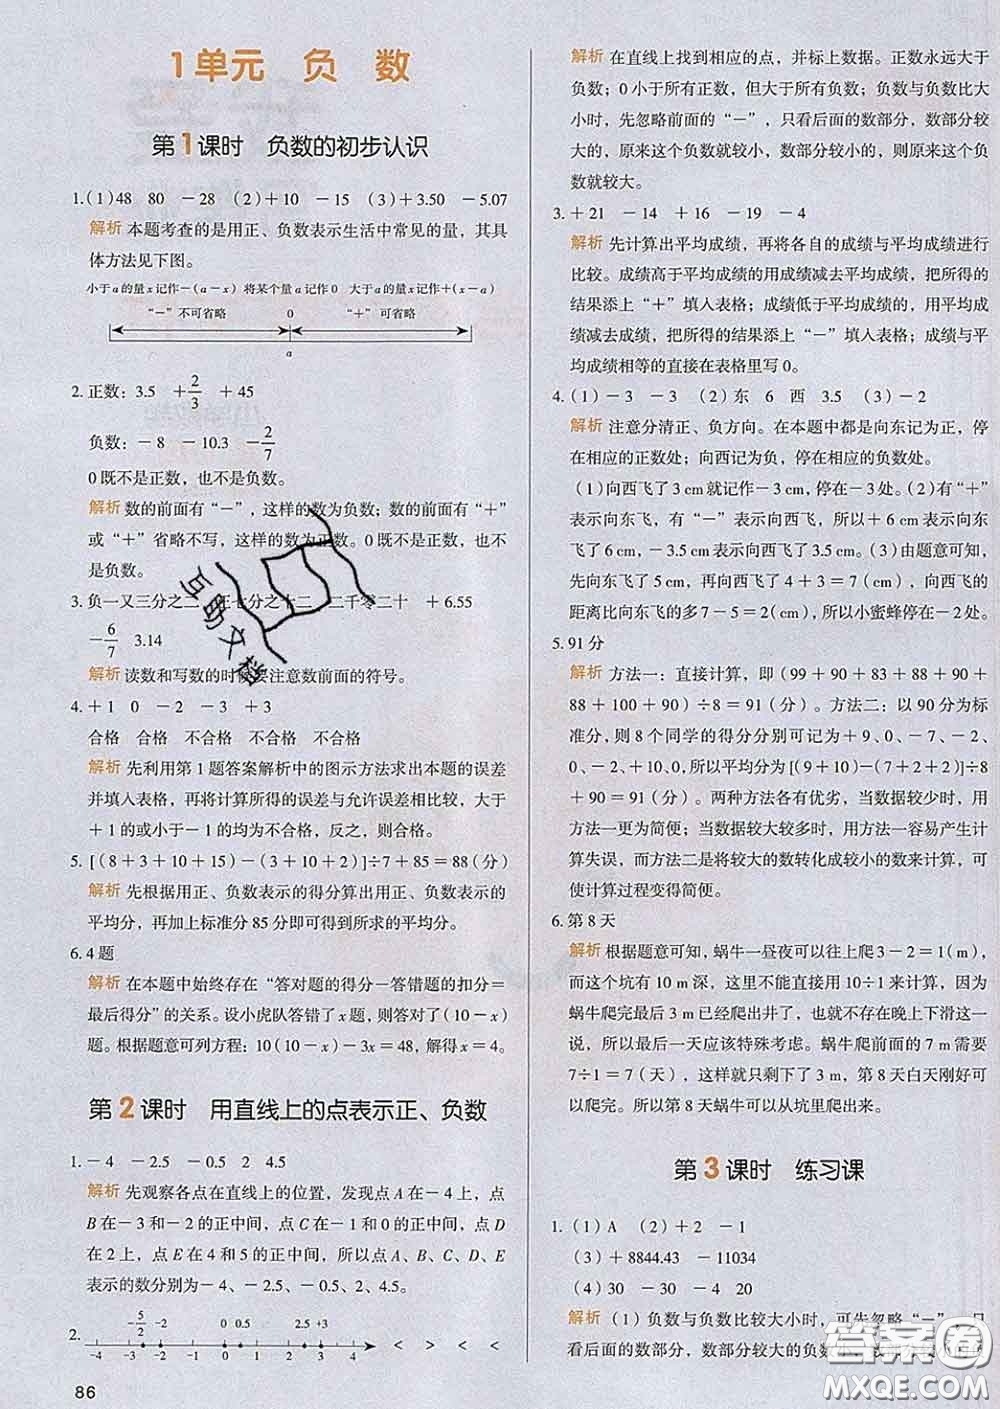 1单元 负 数
第1课时 负数的初步认识
1.(1)48 80 -28 (2)+10 -15 (3)+3.50 -5.07
解析 本题考查的是用正、负数表示生活中常见的量，其具
体方法见下图。
小于a的量x记作-(a-x) 将某个量a记作0 大于a的量x记作+(x-a)
“-”不可省略 0 “+”可省略
a
2. 正数：3.5 +2/3 +45
负数：-8 -10.3 -2/7
0既不是正数，也不是负数。
解析 数的前面有“-”，这样的数为负数；数的前面有“+”
或“+”省略不写，这样的数为正数。0既不是正数，也不
是负数。
3. 负一又三分之二 正七分之十二 二千零二十 +6.55
-6/7 3.14
解析 读数和写数的时候要注意数前面的符号。
4. +1 0 -2 -3 +3
合格 合格 不合格 不合格 不合格
解析 先利用第1题答案解析中的图示方法求出本题的误差
并填入表格，再将计算所得的误差与允许误差相比较，大于
+1的或小于-1的均为不合格，反之，则合格。
5. [(8+3+10+15)-(3+10+2)]÷7+85=88(分)
解析 先根据用正、负数表示的得分算出用正、负数表示的
平均分，再加上标准分85分即可得到所求的平均分。
6. 4题
解析 在本题中始终存在“答对题的得分-答错题的扣分=
最后得分”的关系。设小虎队答错了x题，则答对了(10-x)
题。根据题意可列方程：10(10-x)-3x=48，解得x=4。
第2课时 用直线上的点表示正、负数
1. -4 -2.5 -0.5 2 4.5
解析 先观察各点在直线上的位置，发现点A在-4上，点
B在-3和-2的正中间，点C在-1和0的正中间，点D
在2上，点E在4和5的正中间，所以点A、B、C、D、E
表示的数分别为-4、-2.5、-0.5、2、4.5。
-5/2 -2 0 0.5 2.5 +3
2. -4 -3 -2 -1 0 1 2 3 4 < < > >
86
解析 在直线上找到相应的点，并标上数据。正数永远大于
负数；0小于所有正数，但大于所有负数；负数与负数比大
小时，先忽略前面的“-”，只看后面的数部分，数部分较
大的，原来这个负数就较小，数部分较小的，则原来这个负
数就较大。
3. +21 -14 +16 -19 -4
解析 先计算出平均成绩，再将各自的成绩与平均成绩进行
比较。成绩高于平均成绩的用成绩减去平均成绩，把所得的
结果添上“+”填入表格；成绩低于平均成绩的，用平均成
绩减去成绩，把所得的结果添上“-”填入表格；成绩与平
均成绩相等的直接在表格里写0。
4. (1)-3 -3 (2)东 6 西 3.5 (3)-2
解析 注意分清正、负方向。在本题中都是向东记为正，停
在相应的正数处；向西记为负，停在相应的负数处。
(1)向西飞了3 cm就记作-3 cm，停在-3处。(2)有“+”
表示向东飞，有“-”表示向西飞，所以+6 cm表示向东
飞了6 cm，-3.5 cm表示向西飞了3.5 cm。(3)由题意可知，
先向东飞了5 cm，再向西飞了4+3=7(cm)，向西飞的
距离比向东飞的多7-5=2(cm)，所以小蜜蜂停在-2处。
5. 91分
解析 方法一：直接计算，即(99+90+83+88+90+
88+100+90)÷8=91(分)。方法二：以90分为标
准分，则8个同学的得分分别可记为+9、0、-7、-2、
0、-2、+10、0，所以平均分为[(9+10)-(7+2+2)]÷8
+90=91(分)。两种方法各有优劣，当数据较少时，用
方法一更为简便；当数据较大较多时，用方法一容易产生计
算失误，而方法二是将较大的数转化成较小的数来计算，可
使计算过程变得简便。
6. 第8天
解析 根据题意可知，蜗牛一昼夜可以往上爬3-2=1(m)，
而这个坑有10 m深，这里不能直接用10÷1来计算。因为
蜗牛爬完最后3 m已经爬出井了，也就不存在晚上下滑这一
说，所以最后一天应该特殊考虑。蜗牛爬前面的7 m需要
7÷1=7(天)，这样就只剩下了3 m，第8天白天刚好可
以爬完。所以第8天蜗牛可以从坑里爬出来。
第3课时 练习课
1. (1)A (2)+2 -1
(3)+8844.43 -11034
(4)30 -30 -4 20
解析 (1)负数与负数比较大小时，可先忽略“-”，只
看后面的数部分，数部分较大的负数
互助文档
答案圈
MXQE.COM